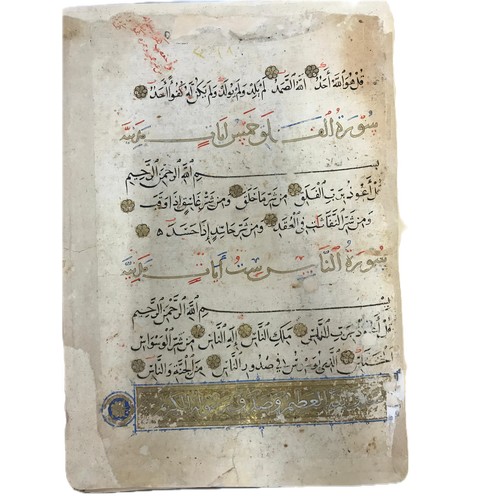 قُلْ هُوَ اللَّهُ أَحَدٌ اللَّهُ الصَّمَدُ لَمْ يَلِدْ وَلَمْ يُولَدْ وَلَمْ يَكُنْ لَهُ كُفُوًا أَحَدٌ
سُورَةُ الْفَلَقِ خَمْسُ آيَاتٍ
بِسْمِ اللَّهِ الرَّحْمَنِ الرَّحِيمِ
قُلْ أَعُوذُ بِرَبِّ الْفَلَقِ مِنْ شَرِّ مَا خَلَقَ وَمِنْ شَرِّ غَاسِقٍ إِذَا وَقَبَ
وَمِنْ شَرِّ النَّفَّاثَاتِ فِي الْعُقَدِ وَمِنْ شَرِّ حَاسِدٍ إِذَا حَسَدَ
سُورَةُ النَّاسِ سِتُّ آيَاتٍ
بِسْمِ اللَّهِ الرَّحْمَنِ الرَّحِيمِ
قُلْ أَعُوذُ بِرَبِّ النَّاسِ مَلِكِ النَّاسِ إِلَهِ النَّاسِ مِنْ شَرِّ الْوَسْوَاسِ
الْخَنَّاسِ الَّذِي يُوَسْوِسُ فِي صُدُورِ النَّاسِ مِنَ الْجِنَّةِ وَالنَّاسِ
العظيم